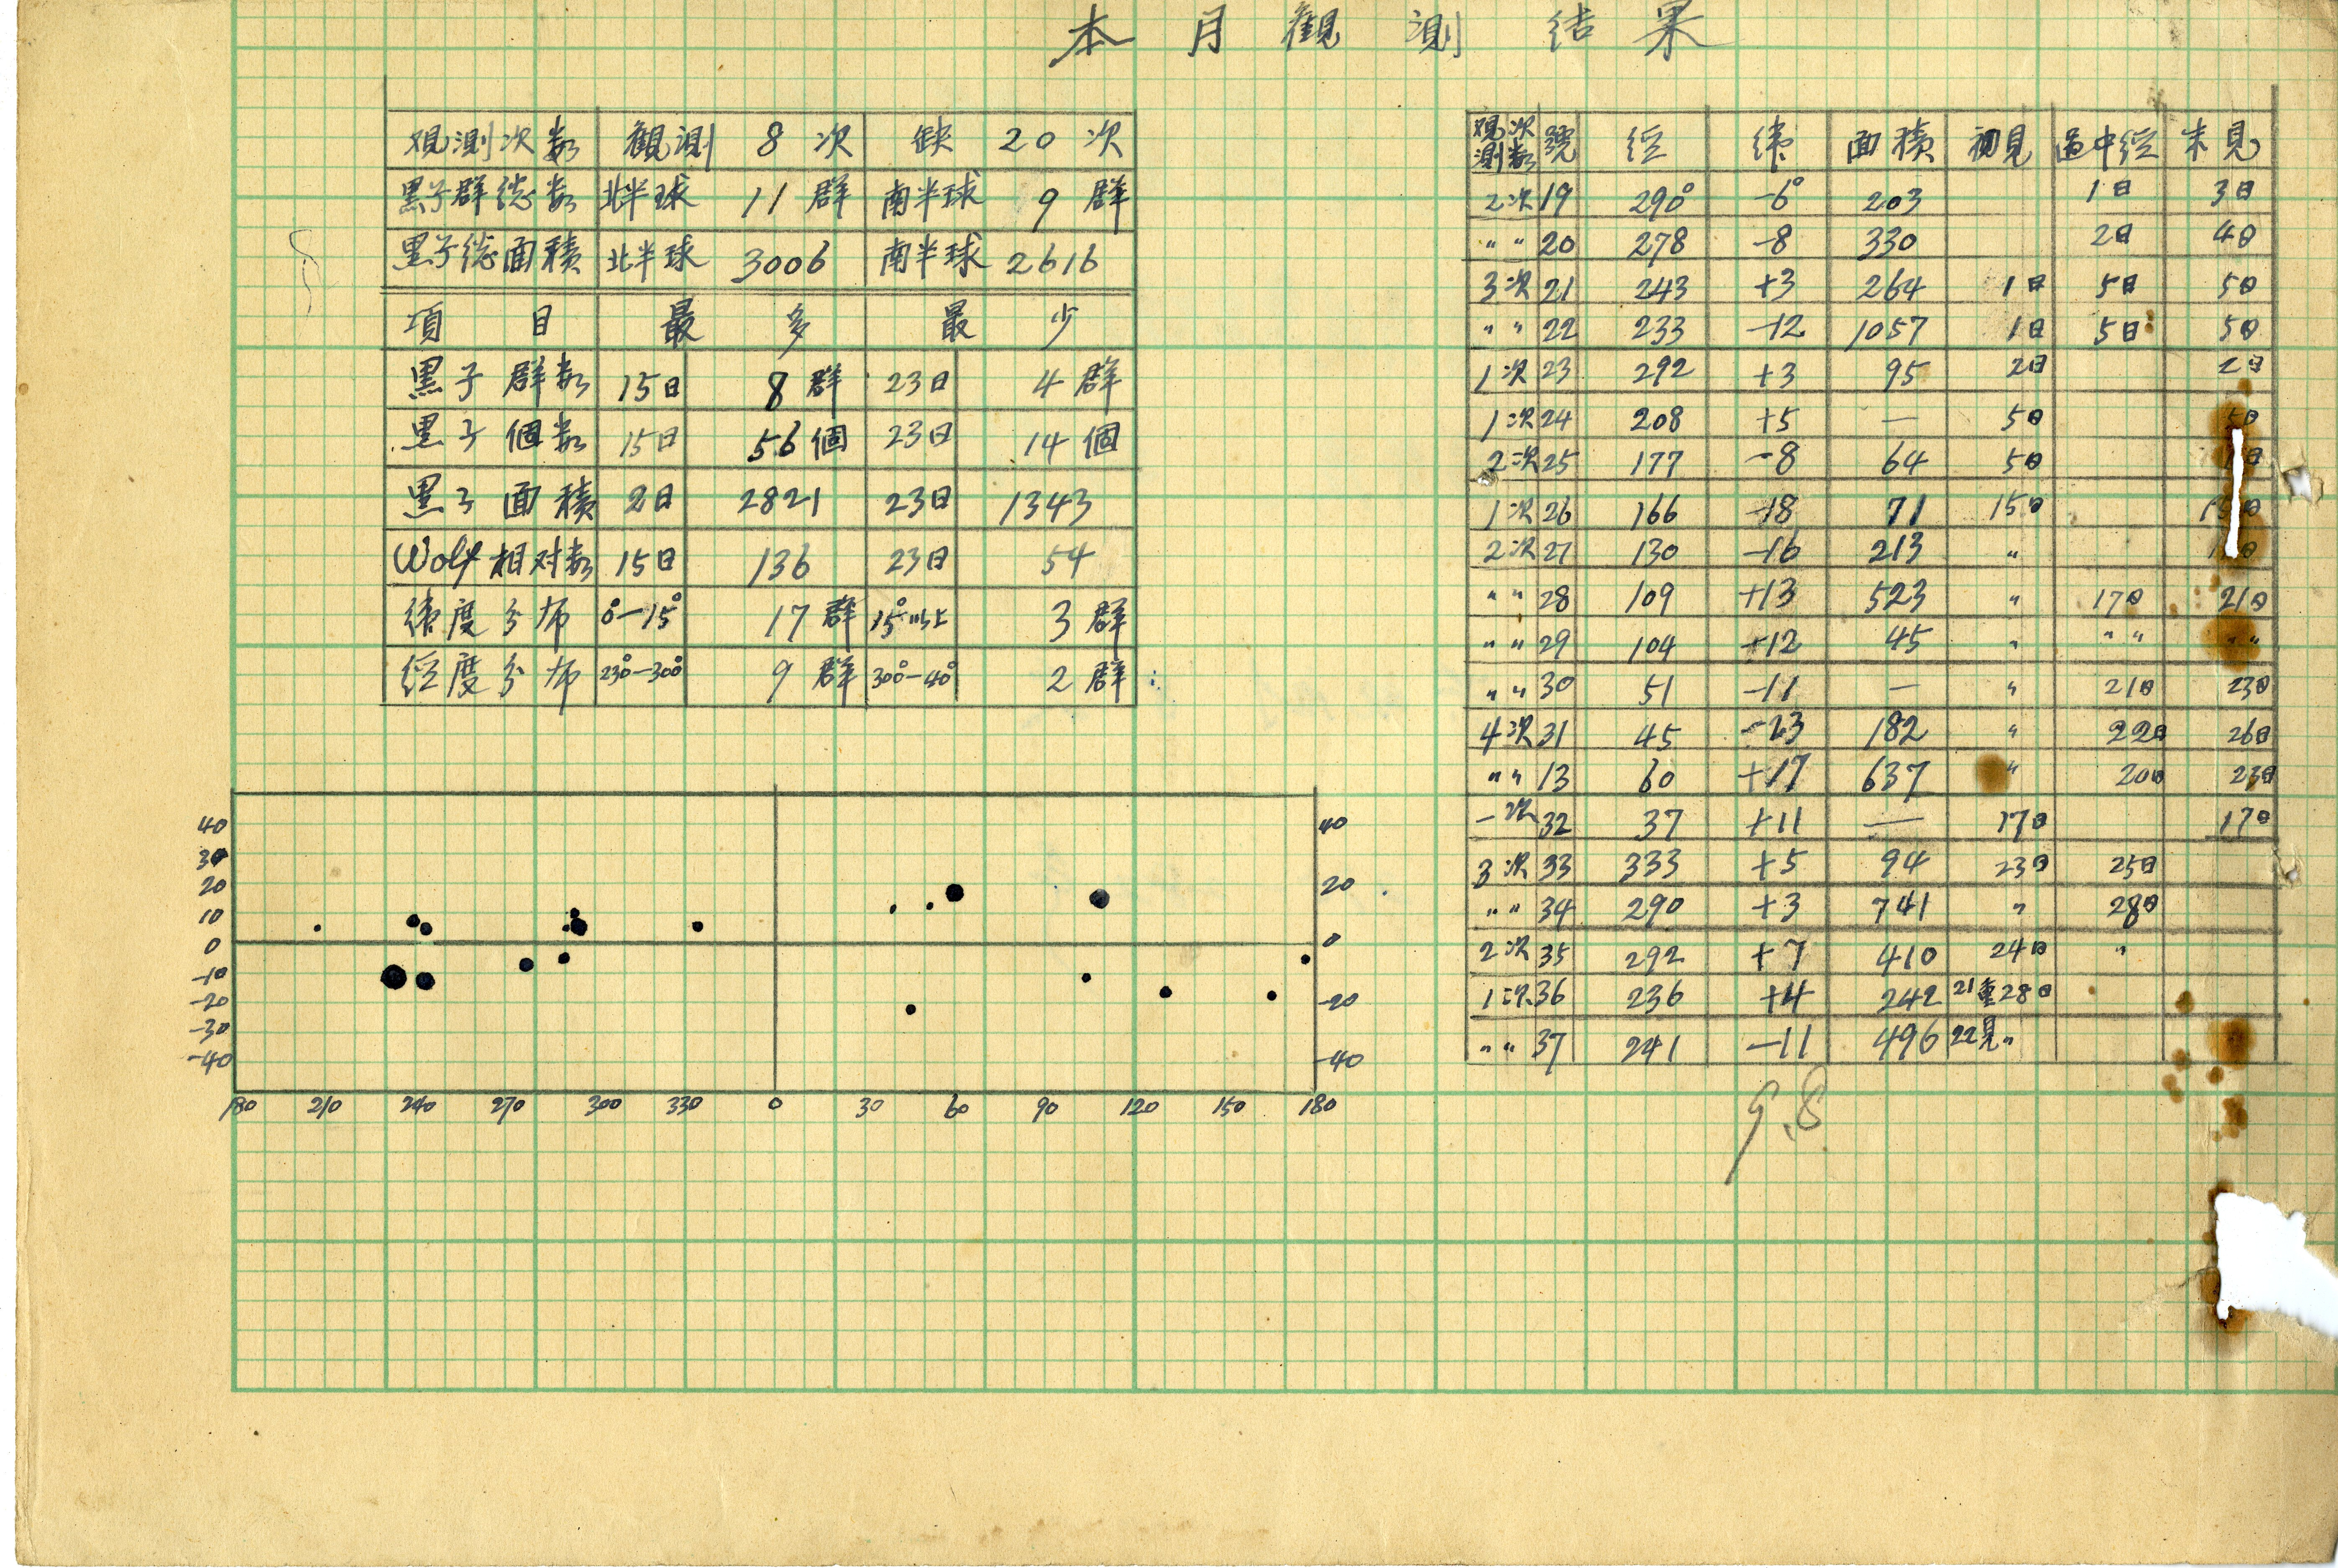 本月觀測結果
观測次数 觀測 8 次 缺 20 次
黒子群总数 北半球 11 群 南半球 9 群
黒子总面積 北半球 3006 南半球 2616
項目 最多 最少
黒子群数 15日 8群 23日 4群
黒子個数 15日 56個 23日 14個
黒子面積 2日 2821 23日 1343
Wolf相对数 15日 136 23日 54
緯度分布 0°-15° 17群 15°以上 3群
経度分布 230°-300° 9群 300°-40° 2群
观測次数 號 経 緯 面積 初見 過中経 末見
2次 19 290° -6° 203 1日 3日
〃 〃 20 278 -8 330 2日 4日
3次 21 243 +3 264 1日 5日 5日
〃 〃 22 233 -12 1057 1日 5日 5日
1次 23 292 +3 95 2日 2日
1次 24 208 +5 — 5日 5日
2次 25 177 -8 64 5日 日
1次 26 166 -18 71 15日 15日
2次 27 130 -16 213 〃 日
〃 〃 28 109 +13 523 〃 17日 21日
〃 〃 29 104 +12 45 〃 〃 〃 〃 〃
〃 〃 30 51 -11 — 〃 21日 23日
4次 31 45 -23 182 〃 22日 26日
〃 〃 13 60 +17 637 〃 20日 23日
一次 32 37 +11 — 17日 17日
3次 33 333 +5 94 23日 25日
〃 〃 34 290 +3 741 〃 28日
2次 35 292 +7 410 24日 〃
1次 36 236 +4 242 21重 28日
〃 〃 37 241 -11 496 22見 〃
9.8
40 40
30
20 20
10
0 0
-10
-20 -20
-30
-40 -40
180 210 240 270 300 330 0 30 60 90 120 150 180